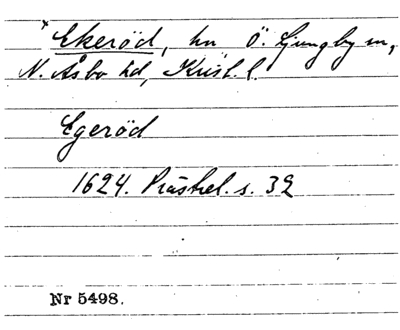 * Ekeröd, hn, Ö. Ljungby sn,
N. Åsbo hd, Krist. l.
Egeröd
1624. Prästrel. s. 32
Nr 5498.